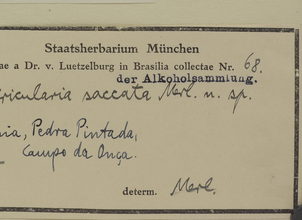 Staatsherbarium München
ae a Dr. v. Luetzelburg in Brasilia collectae Nr. 68.
der Alkoholsammlung.
tricularia saccata Merl. n. sp.
nia, Pedra Pintada,
Campo da Onça.
determ. Merl.